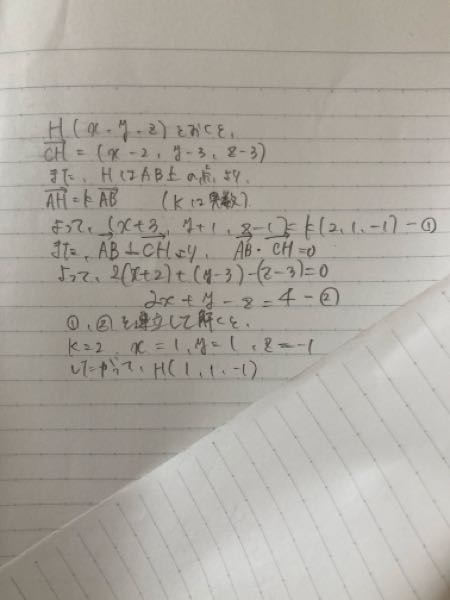 H(x, y, z)とおくと、
CH = (x-2, y-3, z-3)
また、HはAB上の点より、
AH=kAB (kは実数)
よって、(x+3, y+1, z-1)=k(2,1,-1)-①
また、AB⊥CHより、AB・CH=0
よって、2(x+2)+(y-3)-(z-3)=0
2x+y-z=4-②
①、②を連立して解くと、
k=2 x=1,y=1,z=-1
したがって、H(1,1,-1)